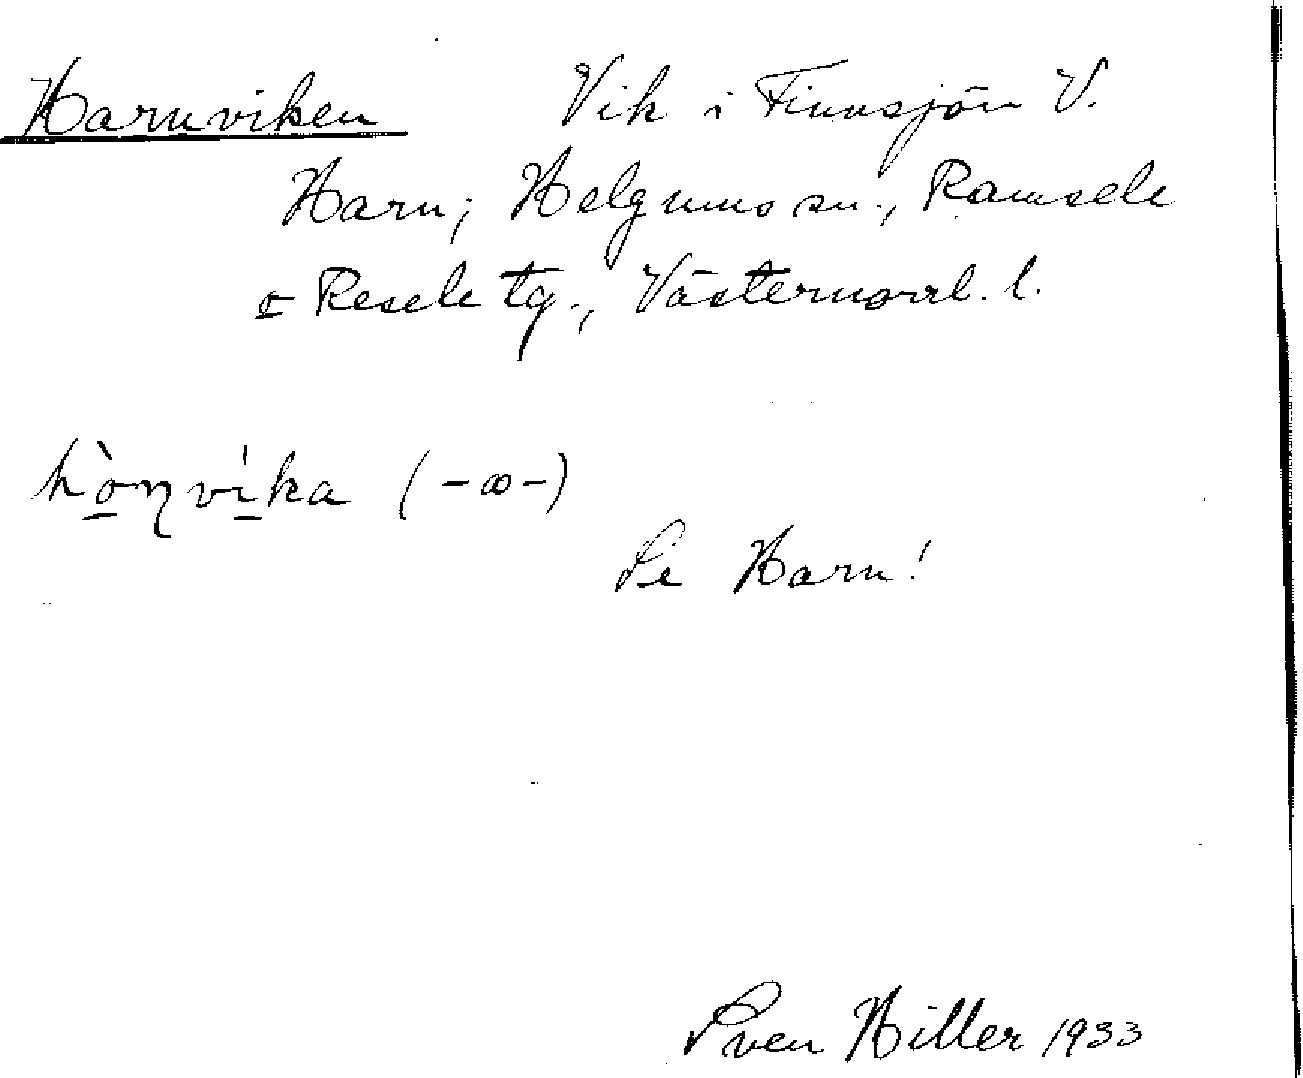 Harnviken Vik i Finnsjön V.
Harn; Helgums sn., Ramsele
o Resele tg., Västernorrl. l.
hò̱ɳvi̱ka (-ꝏ-)
Se Harn!
Sven Hiller 1933